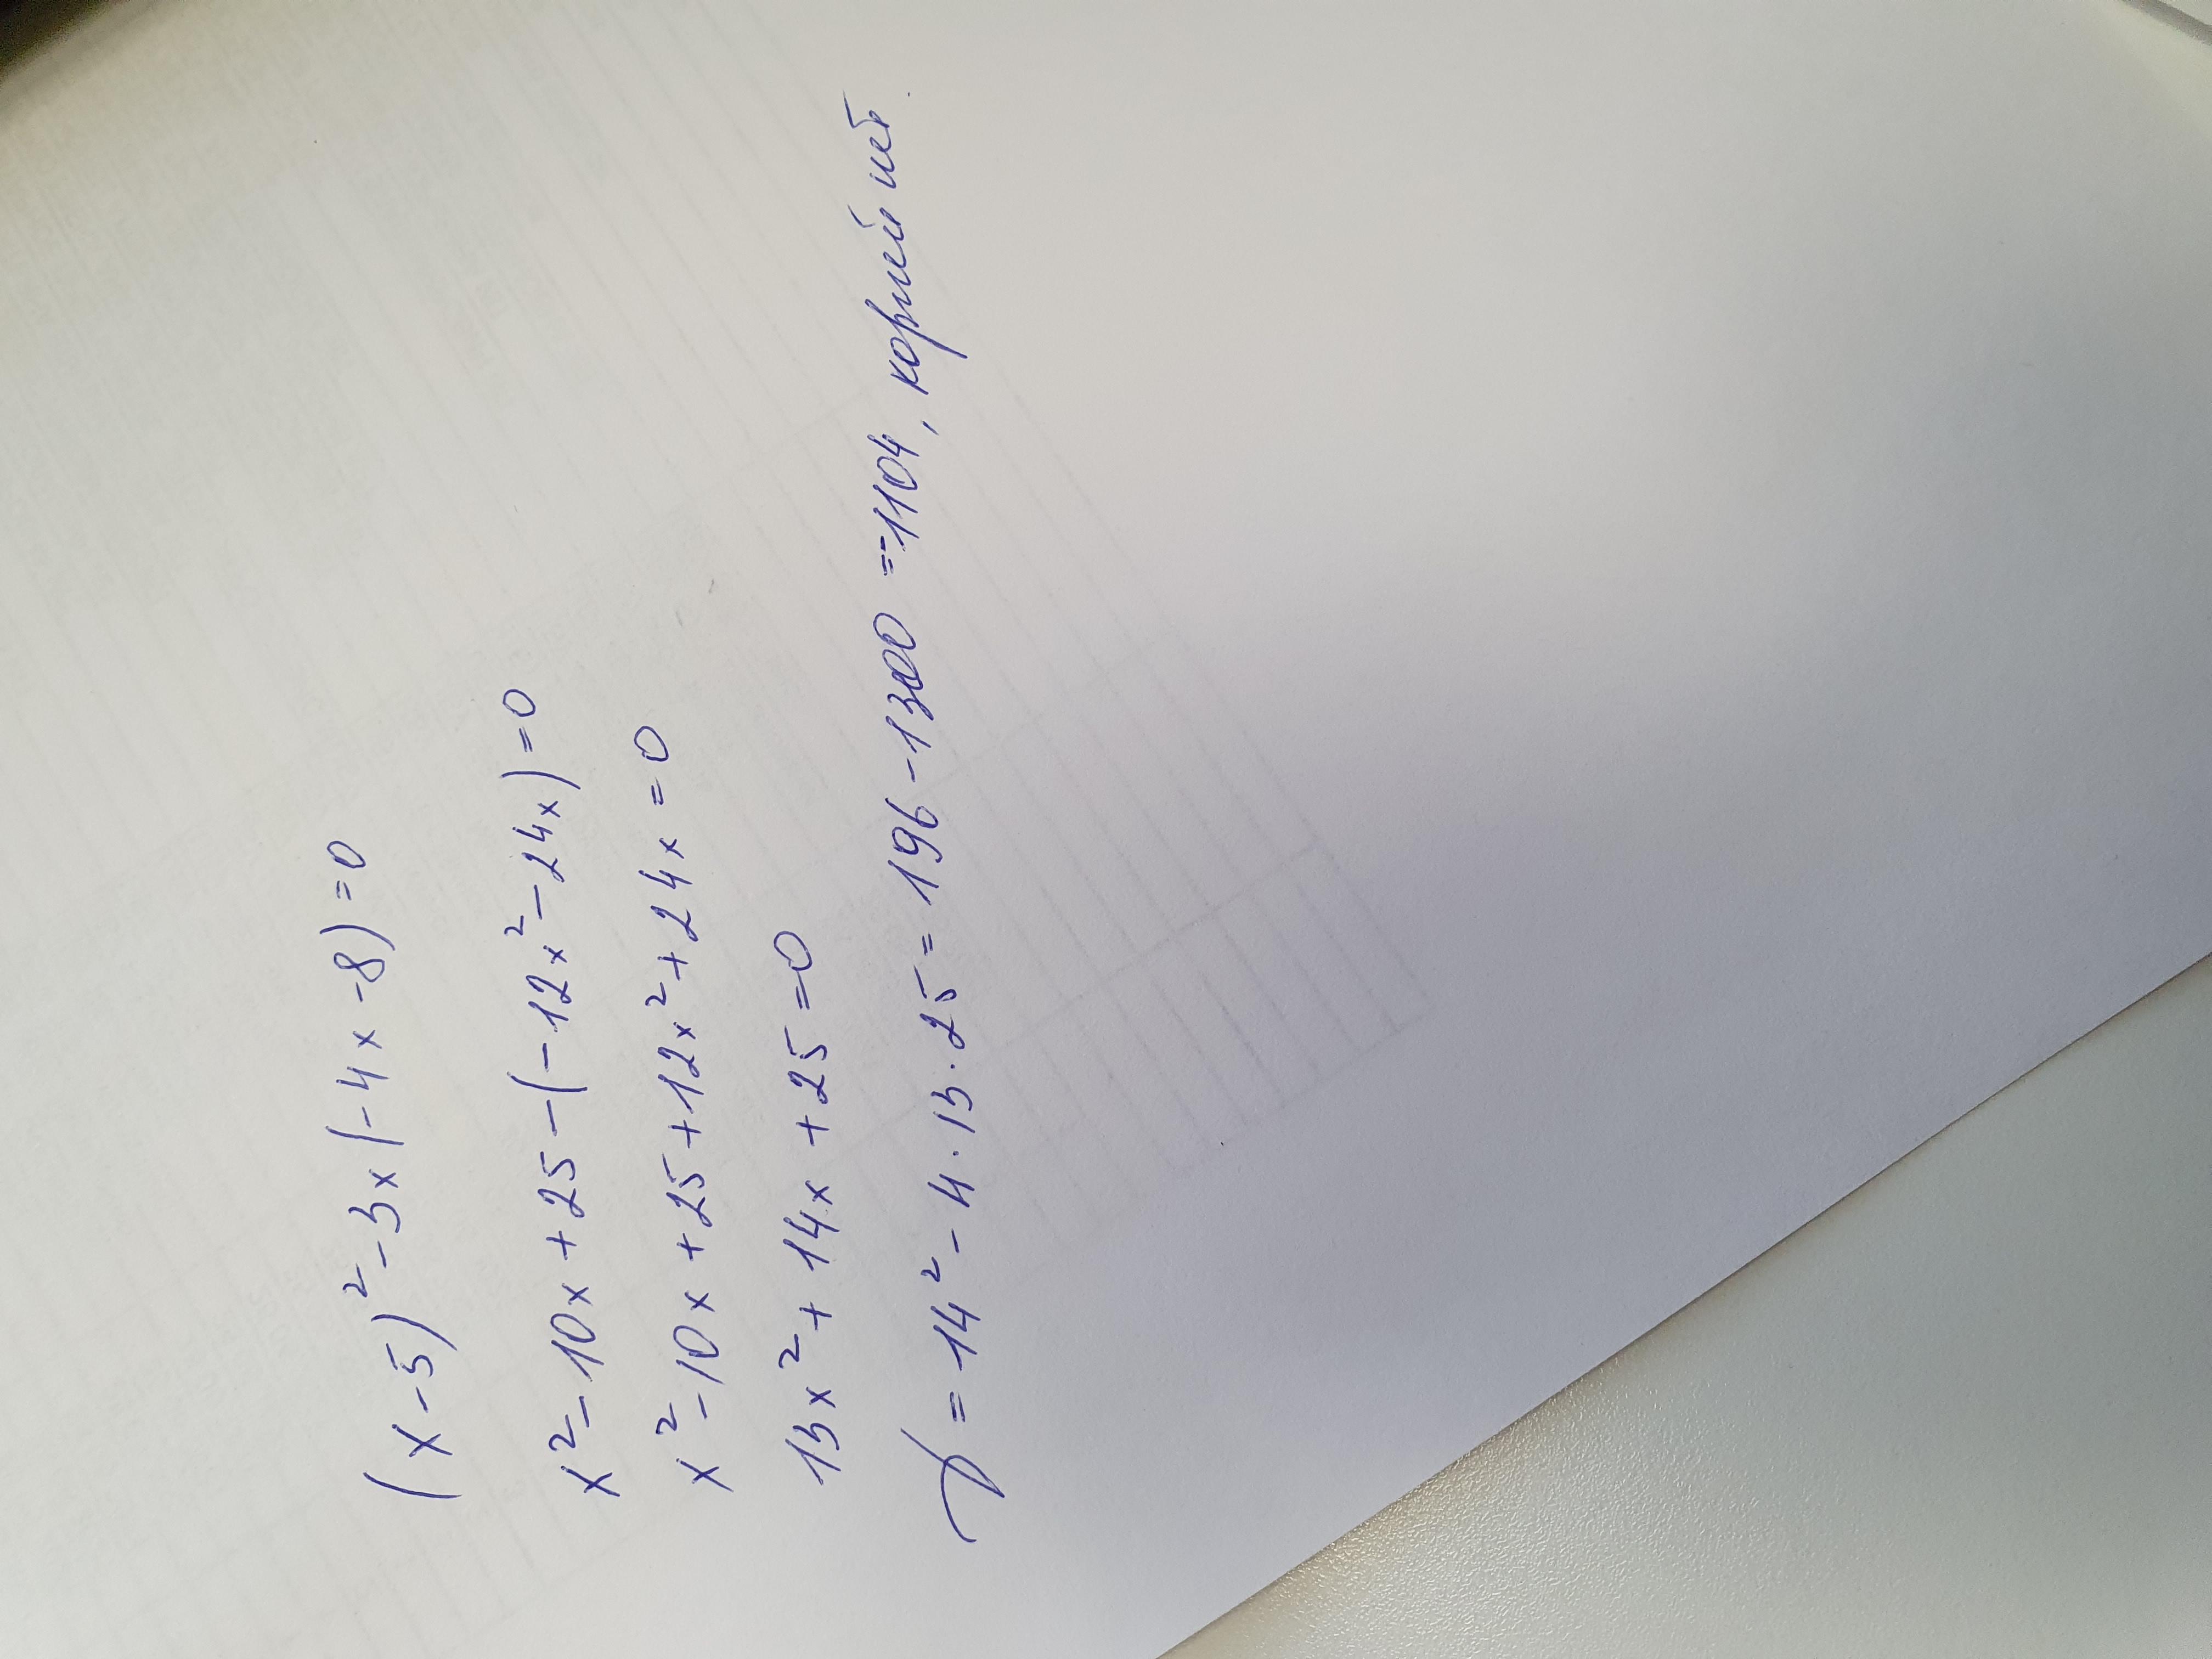 (x-5)²-3x(-4x-8)=0
x²-10x+25-(-12x²-24x)=0
x²-10x+25+12x²+24x=0
13x²+14x+25=0
D=14²-4·13·25=196-1300=-1104, корней нет.